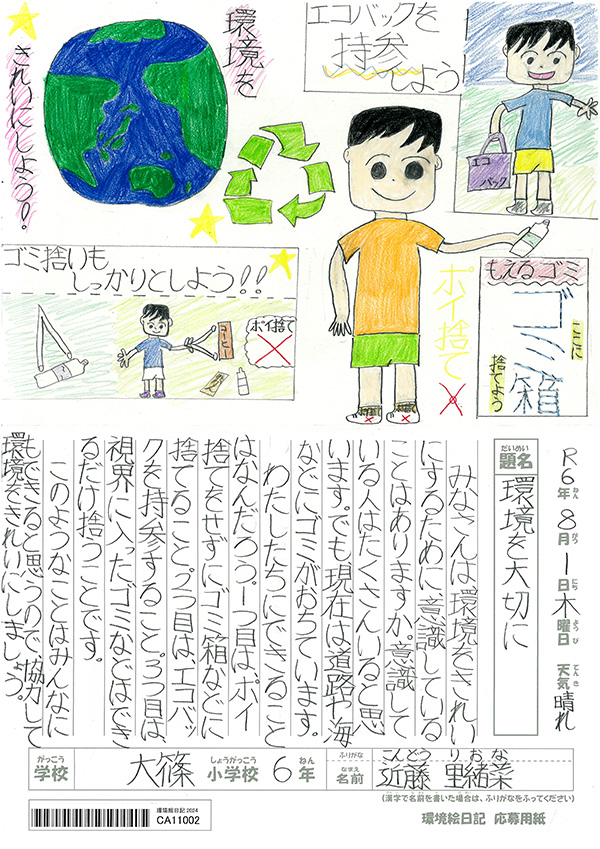 環境を
きれいにしよう!
エコバックを
持参
しよう
エコ
バック
ゴミ捨りも
しっかりとしよう!!
コーヒー
ポイ捨て
ポイ捨て
もえるゴミ
ゴミ箱
ここに
捨てよう
R6年 8月 1日 木曜日 天気 晴れ
ねん がつ にち ようび てんき
だいめい
題名
環境を大切に
みなさんは環境をきれい
にするために意識している
ことはありますか。意識して
いる人はたくさんいると思
います。でも現在は道路や海
などにゴミがおちています。
わたしたちにできること
はなんだろう。一つ目は、ポイ
捨てをせずにゴミ箱などに
捨てること。2つ目は、エコバッ
クを持参すること。3つ目は、
視界に入ったゴミなどはでき
るだけ捨うことです。
このようなことはみんなに
もできると思うので、協力して
環境をきれいにしましょう。
がっこう しょうがっこう ねん
学校 大篠 小学校 6年
ふりがな こんどう りおな
なまえ
名前 近藤 里緒菜
(漢字で名前を書いた場合は、ふりがなをふってください)
環境絵日記 2024
CA11002
環境絵日記 応募用紙